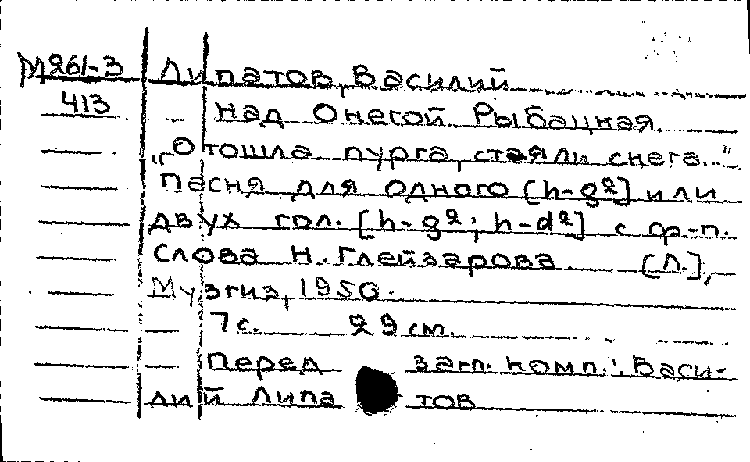 М261-3 Липатов, Василий
413 Над Онегой. Рыбацкая.
„Отошла пурга, стаяли снега..."
Песня для одного [h-g2] или
двух гол. [h-g2; h-d2] с ф-п.
Слова Н. Глейзарова. [Л.],
Музгиз, 1950.
7 с. 29 см.
Перед загл. комп.: Васи-
лий Липатов